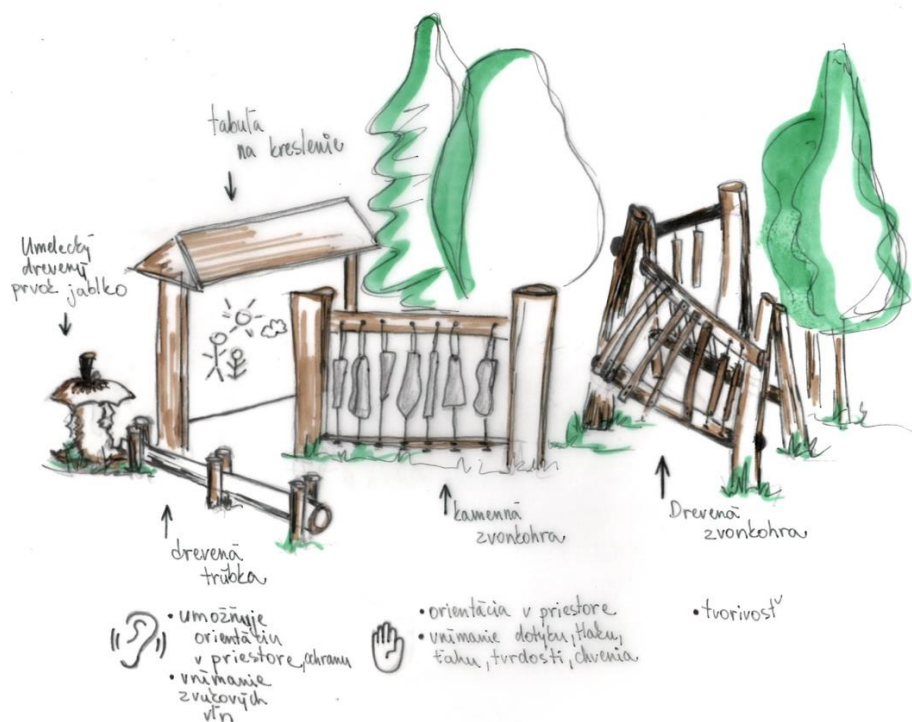 tabuľa
na kreslenie
Umelecký
drevený
prvok jablko
drevená
trúbka
kamenná
zvonkohra
Drevená
zvonkohra
• umožňuje
orientáciu
v priestore, ochranu
• vnímanie
zvukových
vĺn
• orientácia v priestore
• vnímanie dotyku, tlaku,
ťahu, tvrdosti, chvenia
• tvorivosť